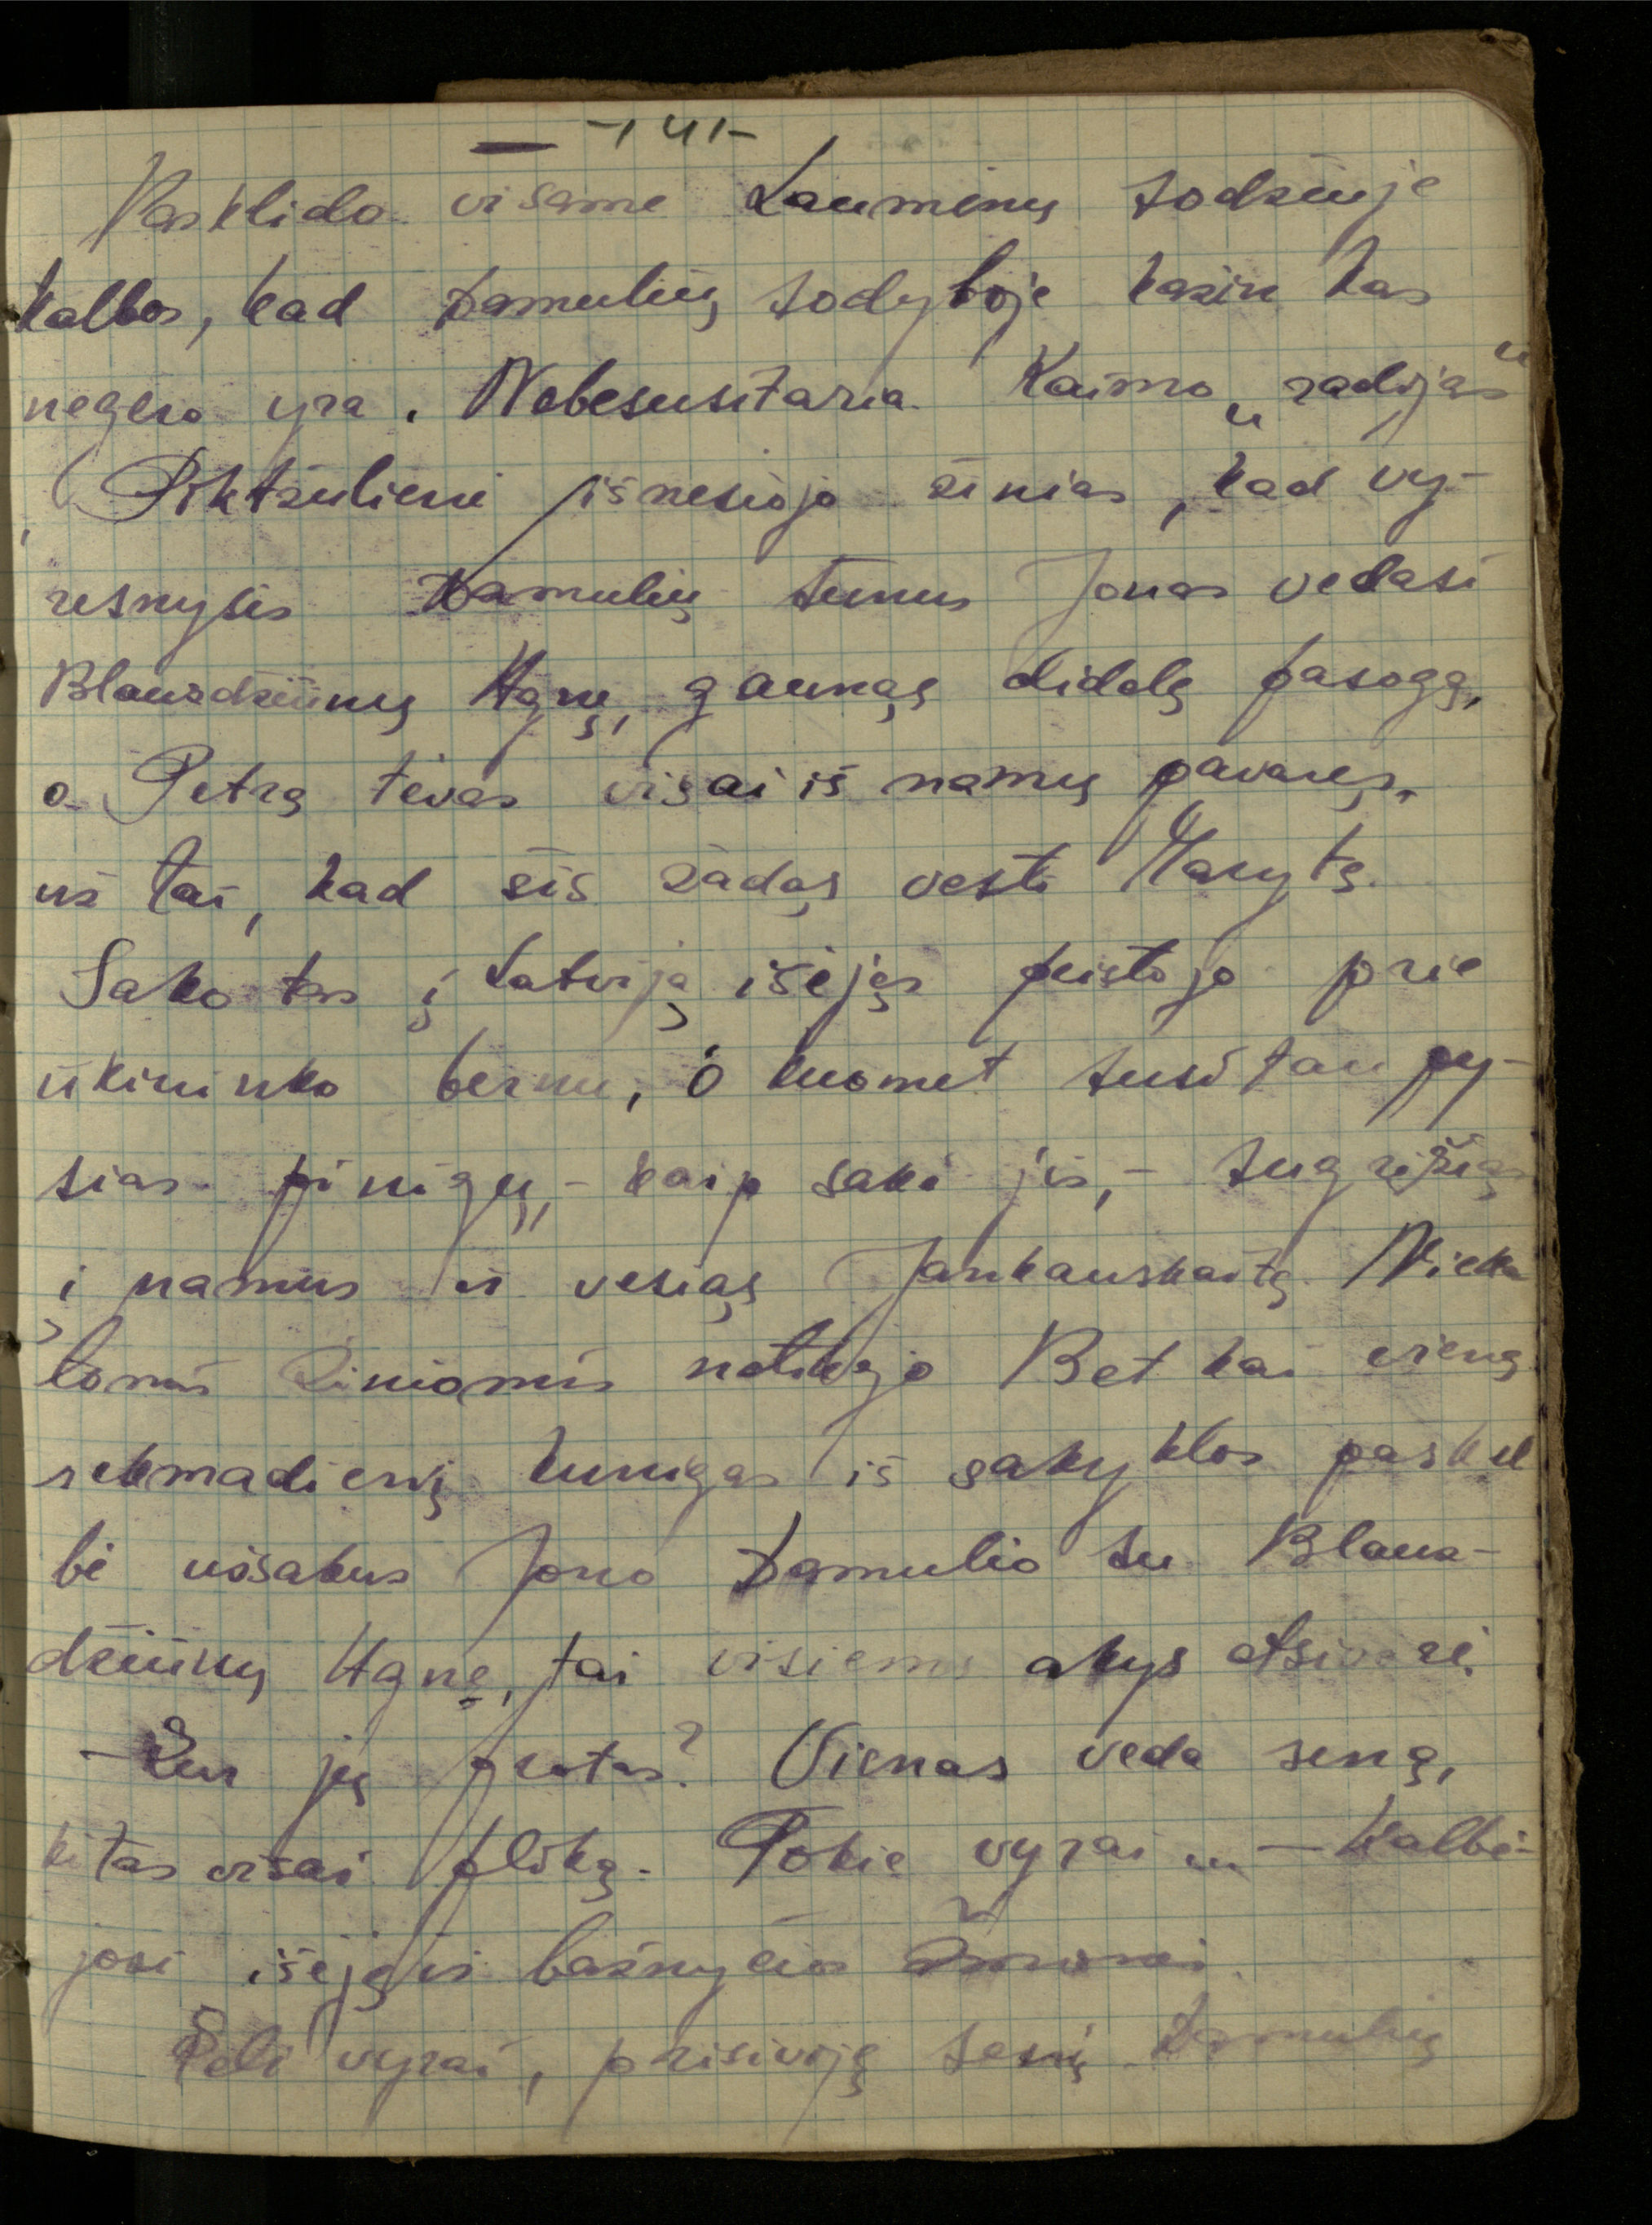 -141-
Pasklido visame Lauminų sodžiuje
kalbos, kad Damulių sodyboje kažin kas
negero yra. Nebesusitaria. Kaimo „radijas“
Pikčiulienė išnešiojo žinias, kad vy-
resnysis Damulių sunus Jonas vedasi
Blauzdžiūnų Agnę, gaunąs didelę pasogą,
o Petrą tėvas visai iš namų pavaręs,
už tai, kad šis žadąs vesti Marytę.
Sako tas į Latviją išėjęs pristojo prie
ūkininko bernu, o kuomet susitaupy-
sias pinigų, - kaip sakė jis, - sugrįšiąs
į namus ir vesiąs Jankauskaitę. Niekas
tomis žiniomis netikėjo Bet kai vieną
sekmadienį kunigas iš sakyklos paskel
bė užsakus Jono Damulio su Blauz-
džiūnų Agne, tai visiems akys atsivėrė.
- Kur jų protas? Vienas veda seną,
kitas visai pliką. Tokie vyrai ... - kalbė-
josi išėję iš bažnyčios žmonės.
Keli vyrai, prisiviję senį Damulių